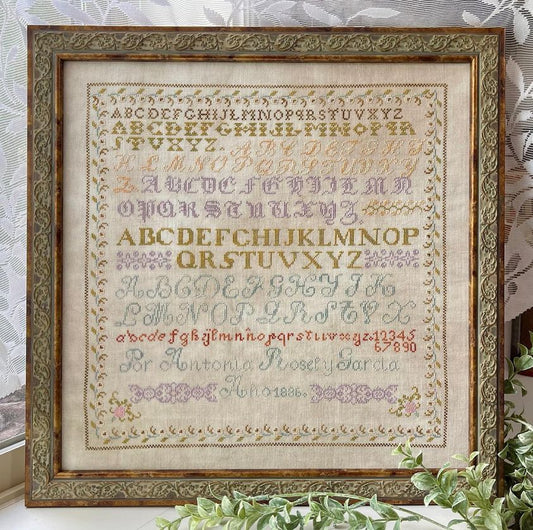 ABCDEFGHIJKLMNOPQRSTUVXYZ
ABCDEFGHIJLMNOPQR
STUVXYZ. ABCDEFGHIJ
KLMNOPQRSTUVXY
Z ABCDEFGHIJLMN
OPQRSTUVXYZ
ABCDEFGHIJKLMNOP
QRSTUVXYZ
ABCDEFGHIJK
LMNOPQRSTVX
abcdefghijlmnñopqrstuvxyz.12345
67890
Por Antonia Rosel y Garcia
Año 1886.